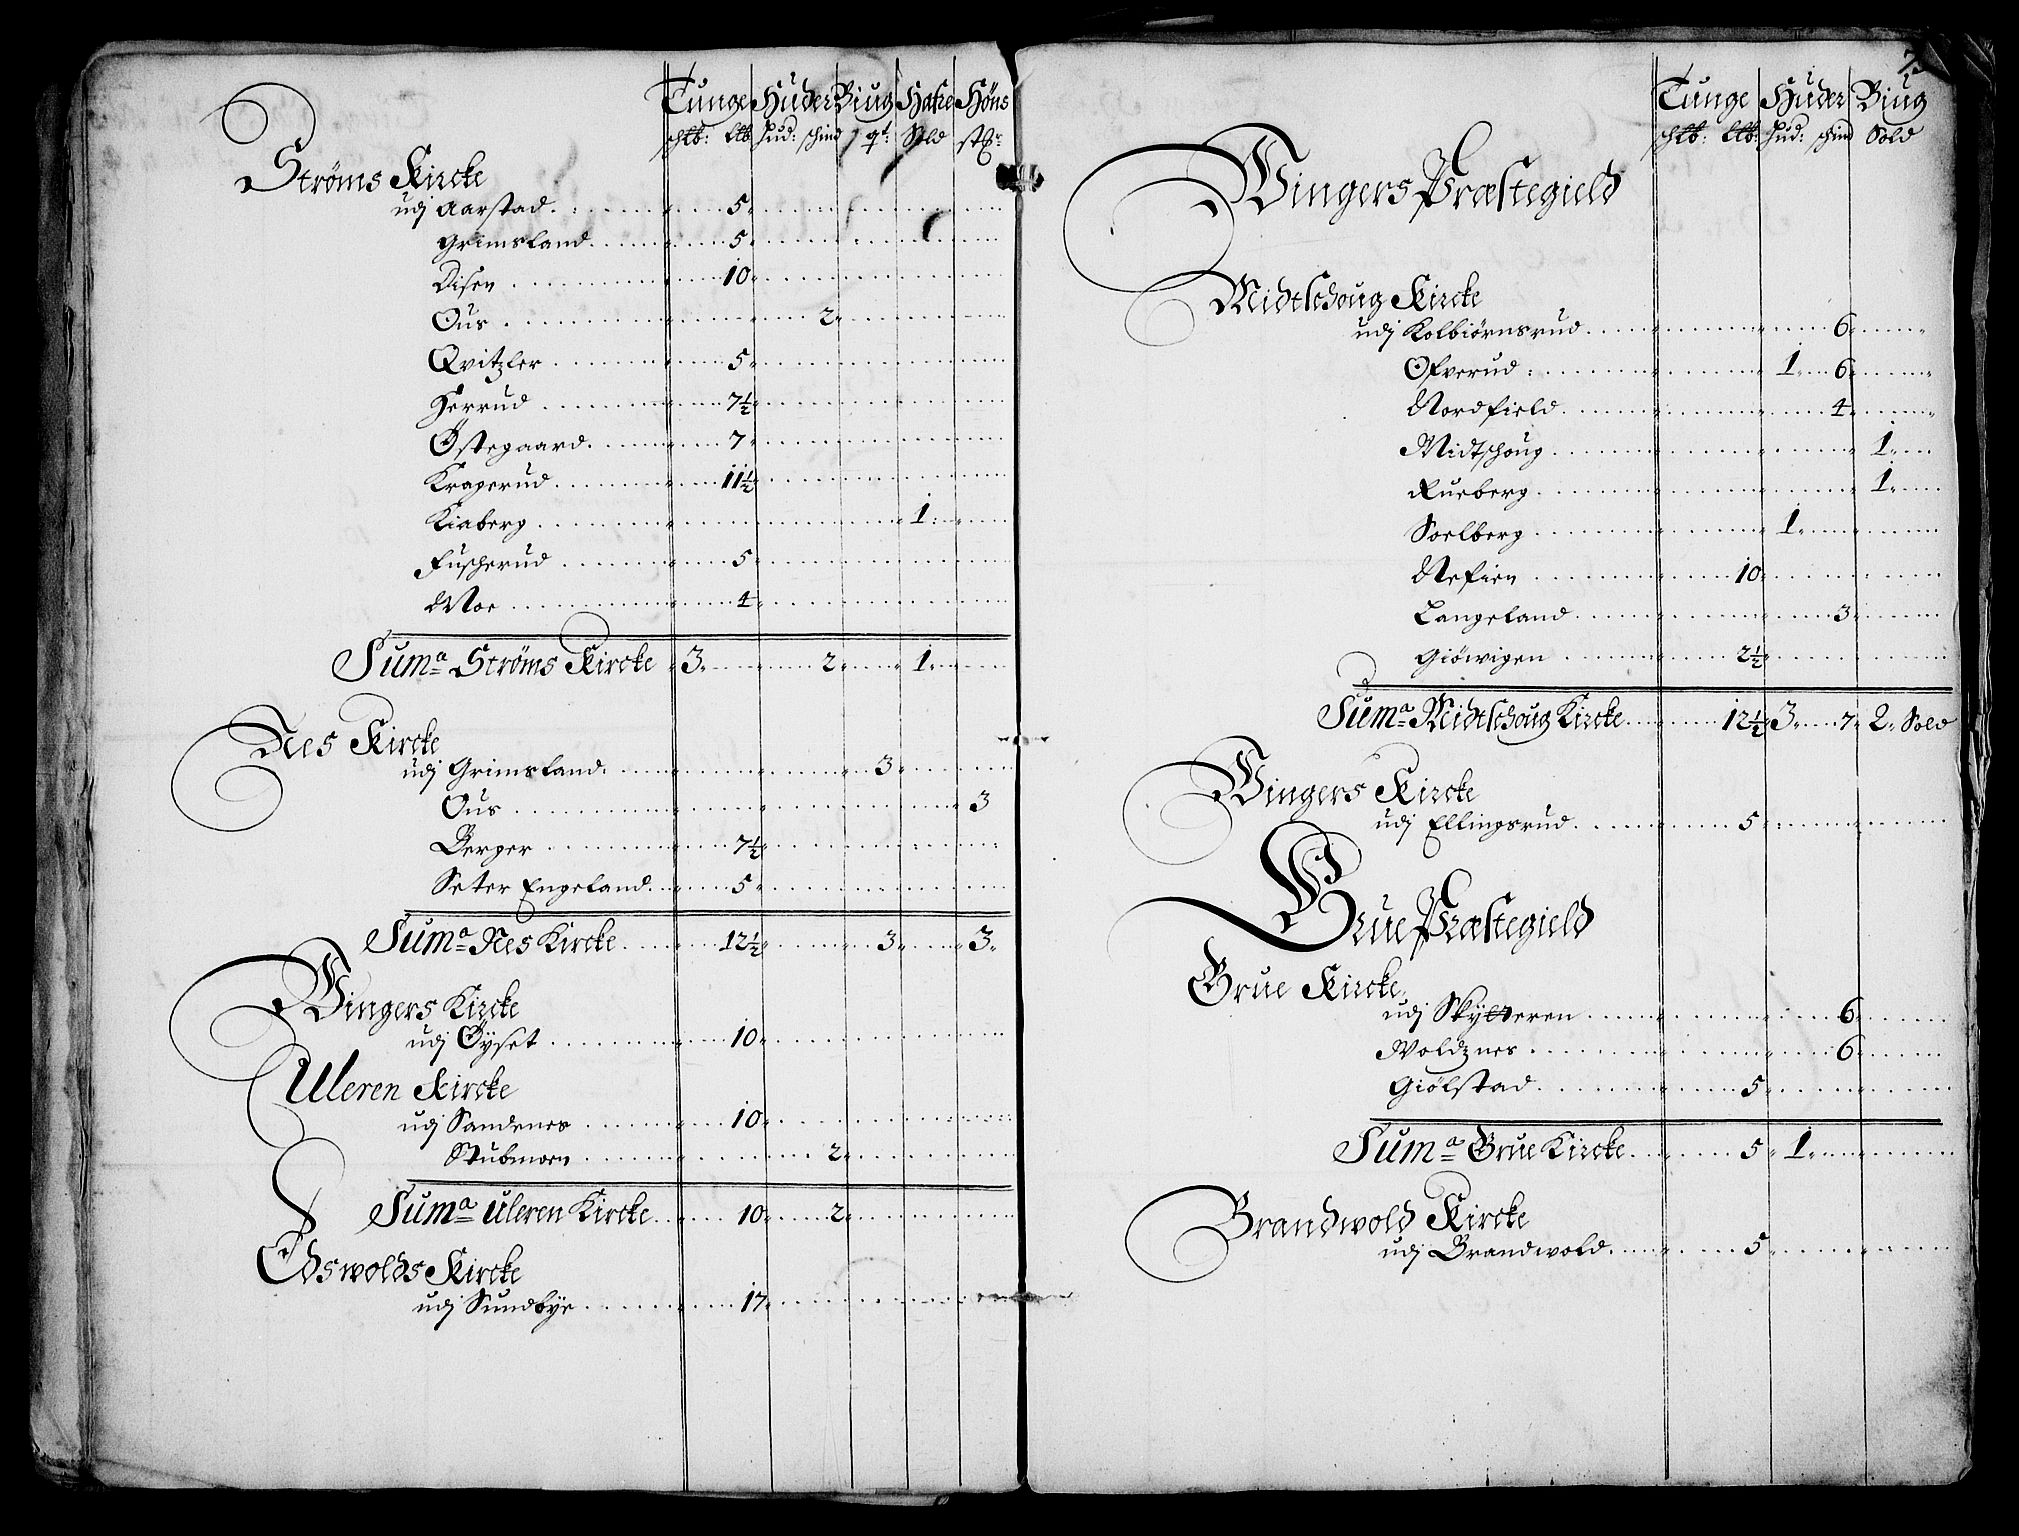 Tunge Huder Biug Hafre Høns
schlb: Llb Hud: schind qt: Sold stk
Strøms Kircke
udj Aarstad 5
Grimsland 5
Disen 10
Ous 2
Qvitzler 5
Herrud 7½
Østegaard 7
Kragerud 11½
Kiaberg 1
Fuscherud 5
Noe 4
Suma Strøms Kircke 3 2 1
Nes Kircke
udj Grimsland 3
Ous 3
Berger 7½
Seter Engeland 5
Suma Nes Kircke 12½ 3 3
Wingers Kircke
udj Øyset 10
Uleren Kircke
udj Sandnes 10
Stubmoen 2
Suma Uleren Kircke 10 2
Edswolds Kircke
udj Sundbye 17
Tunge Huder Biug
schlb: Llb: Hud: schind Sold
Wingers Præstegield
Midtschoug Kircke
udj Kolbiørnsrud 6
Ofverud 1 6
Nordfield 4
Midtschoug 1
Rueberg 1
Soelberg 1
Nefien 10
Langeland 3
Giøwigen 2½
Suma Midtschoug Kircke 12½ 3 7 2 Sold
Wingers Kircke
udj Ellingsrud 5
Grue Præstegield
Grue Kircke
udj Skytteren 6
Woldznes 6
Giølstad 5
Suma Grue Kircke 5 1
Brandwold Kircke
udj Brandwold 5